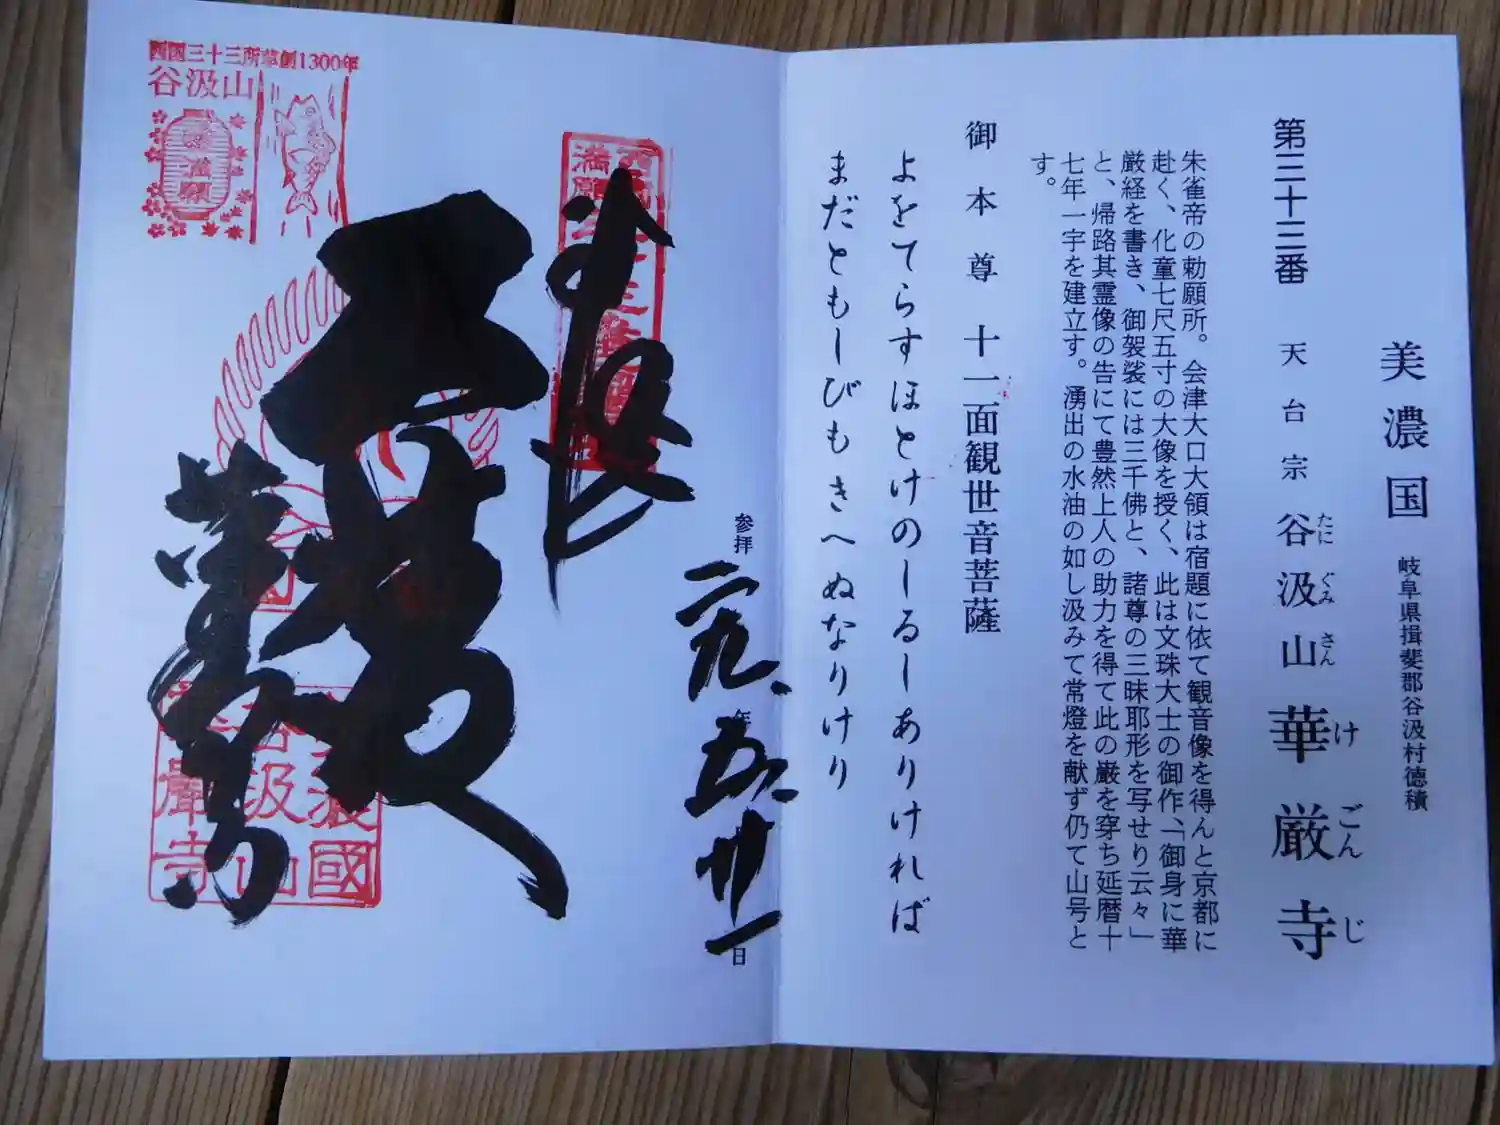 美濃国 岐阜県揖斐郡谷汲村徳積
第三十三番 天台宗 谷汲山 華厳寺
たに ぐみ さん け ごん じ
朱雀帝の勅願所。会津大口大領は宿題に依て観音像を得んと京都に
赴く、化童七尺五寸の大像を授く、此は文珠大士の御作、「御身に華
厳経を書き、御袈裟には三千佛と、諸尊の三昧耶形を写せり云々」
と、帰路其霊像の告にて豊然上人の助力を得て此の巌を穿ち延暦十
七年一宇を建立す。湧出の水油の如し汲みて常燈を献ず仍て山号と
す。
御本尊 十一面観世音菩薩
よをてらすほとけのしるしありければ
まだともしびもきへぬなりけり
参拝 二九年 五 廿一日
西国三十三所草創1300年
谷汲山
満願
谷汲山
華厳寺